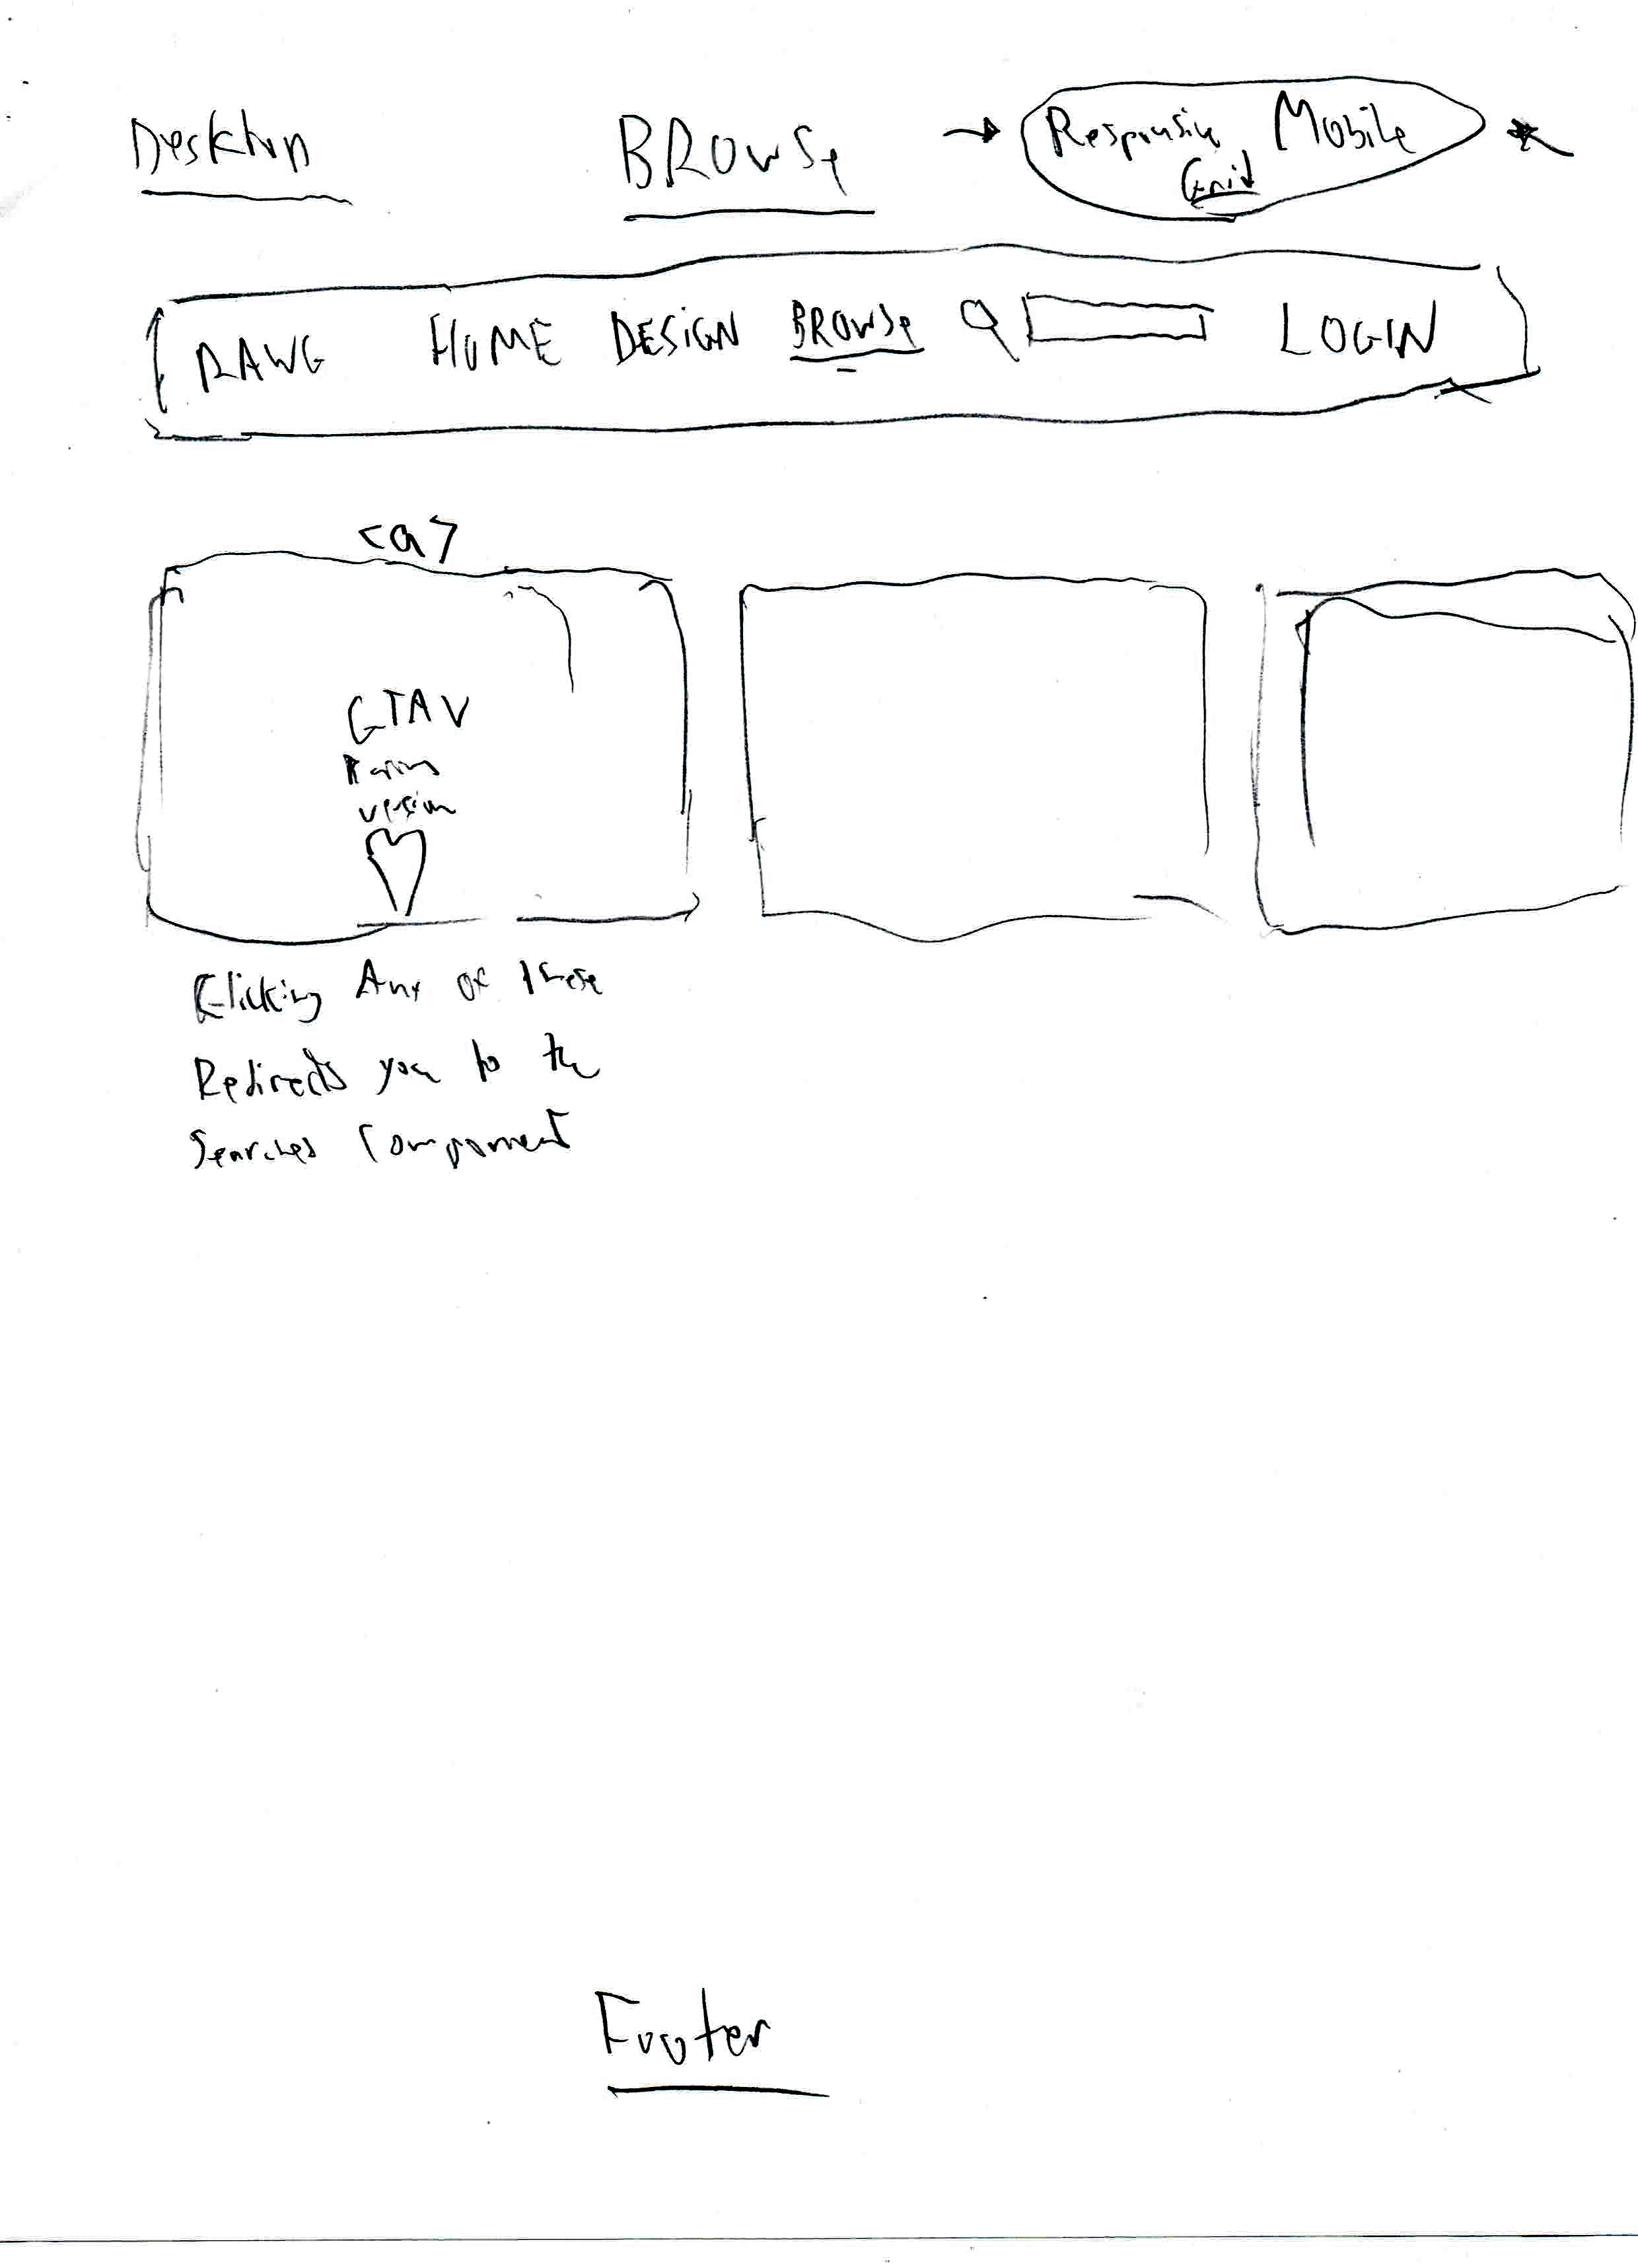 Desktop
BROWSe
Responsive Mobile
Grid
RAWG HOME DESIGN BROWSe LOGIN
<a>
GTA V
Rating
version
Clicking Any of these
Redirects you to the
Searched Component
Footer